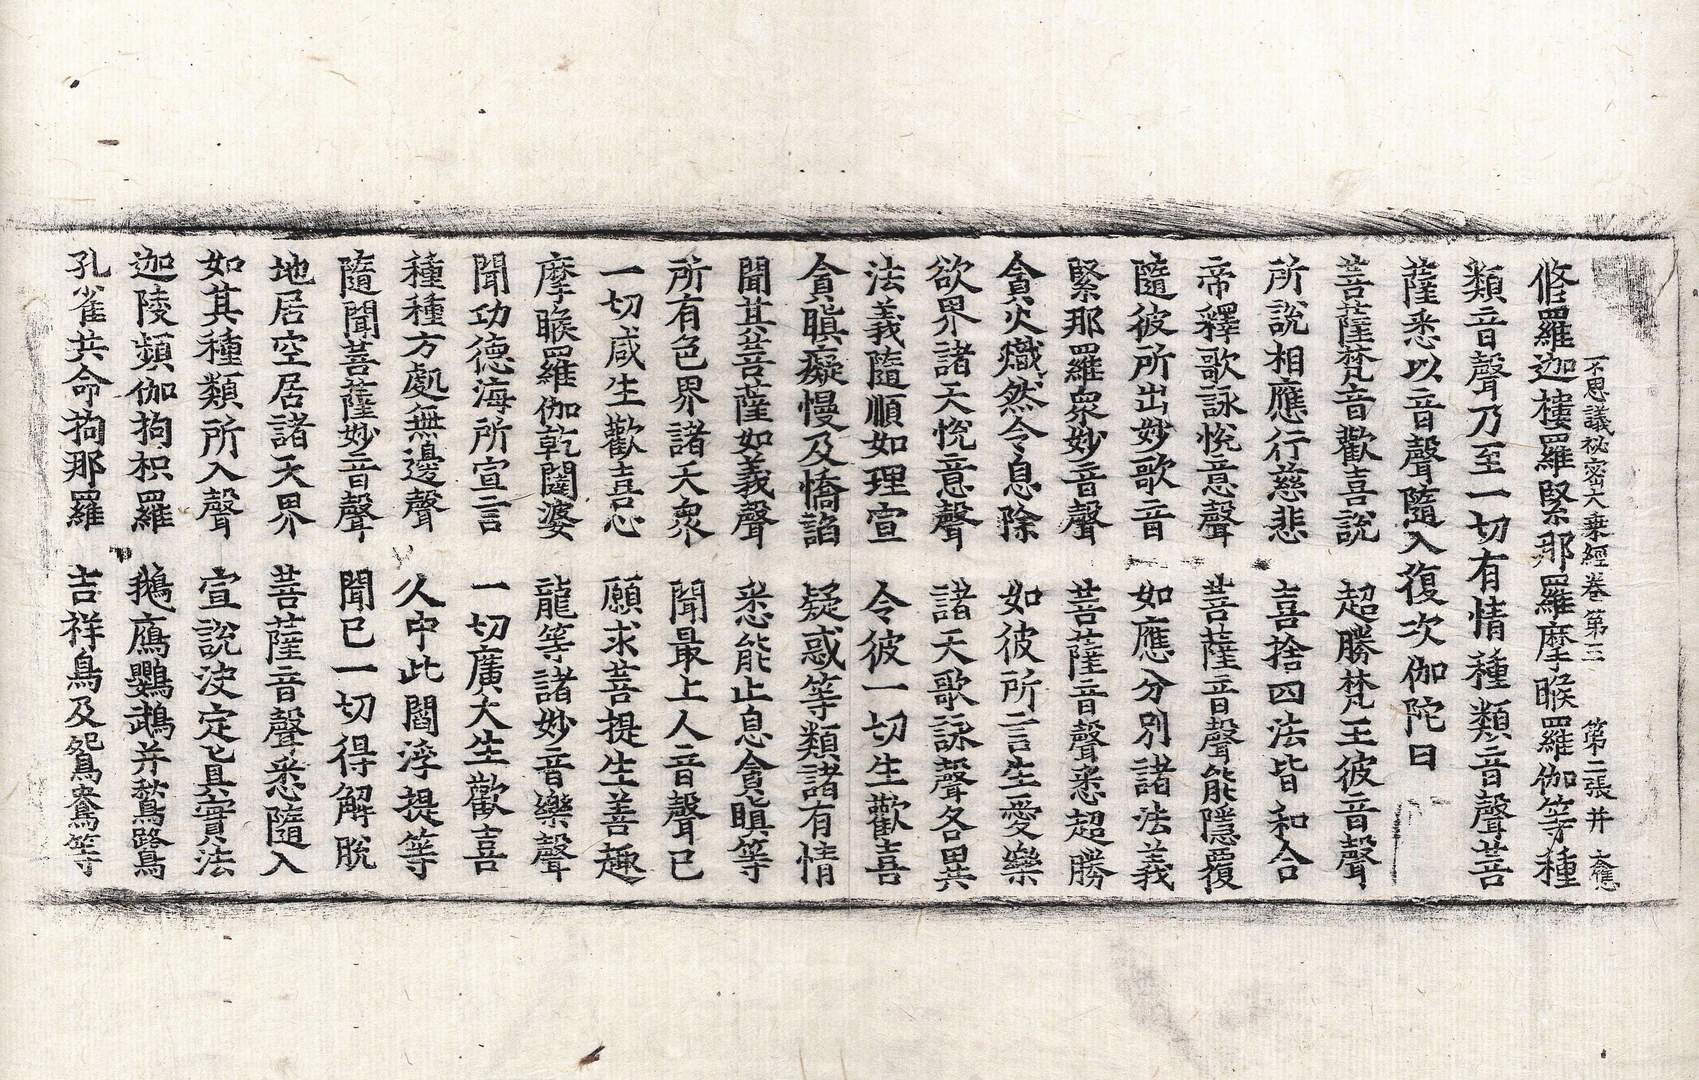 不思議秘密大乗經卷第三 第二張 幷
修羅迦樓羅緊那羅摩睺羅伽等種
類音聲乃至一切有情種類音聲菩
薩悉以音聲隨入復次伽陀曰
菩薩梵音歡喜說 超勝梵王彼音聲
所說相應行慈悲 喜捨四法皆和合
帝釋歌詠悅意聲 菩薩音聲能隱覆
隨彼所出妙歌音 如應分別諸法義
緊那羅衆妙音聲 菩薩音聲悉超勝
貪火熾然令息除 如彼所言生愛樂
欲界諸天悅意聲 諸天歌詠聲各異
法義隨順如理宣 令彼一切生歡喜
貪瞋癡慢及憍諂 疑惑等類諸有情
聞其菩薩如義聲 悉能止息貪瞋等
所有色界諸天衆 聞最上人音聲已
一切咸生歡喜心 願求菩提生善趣
摩睺羅伽乾闥婆 龍等諸妙音樂聲
聞功德海所宣言 一切廣大生歡喜
種種方處無邊聲 久中此閻浮提等
隨聞菩薩妙音聲 聞已一切得解脫
地居空居諸天界 菩薩音聲悉隨入
如其種類所入聲 宣說決定真實法
迦陵頻伽拘枳羅 鵝鴈鸚鵡并鶖鷺
孔雀共命拘那羅 吉祥鳥及鴛鴦等